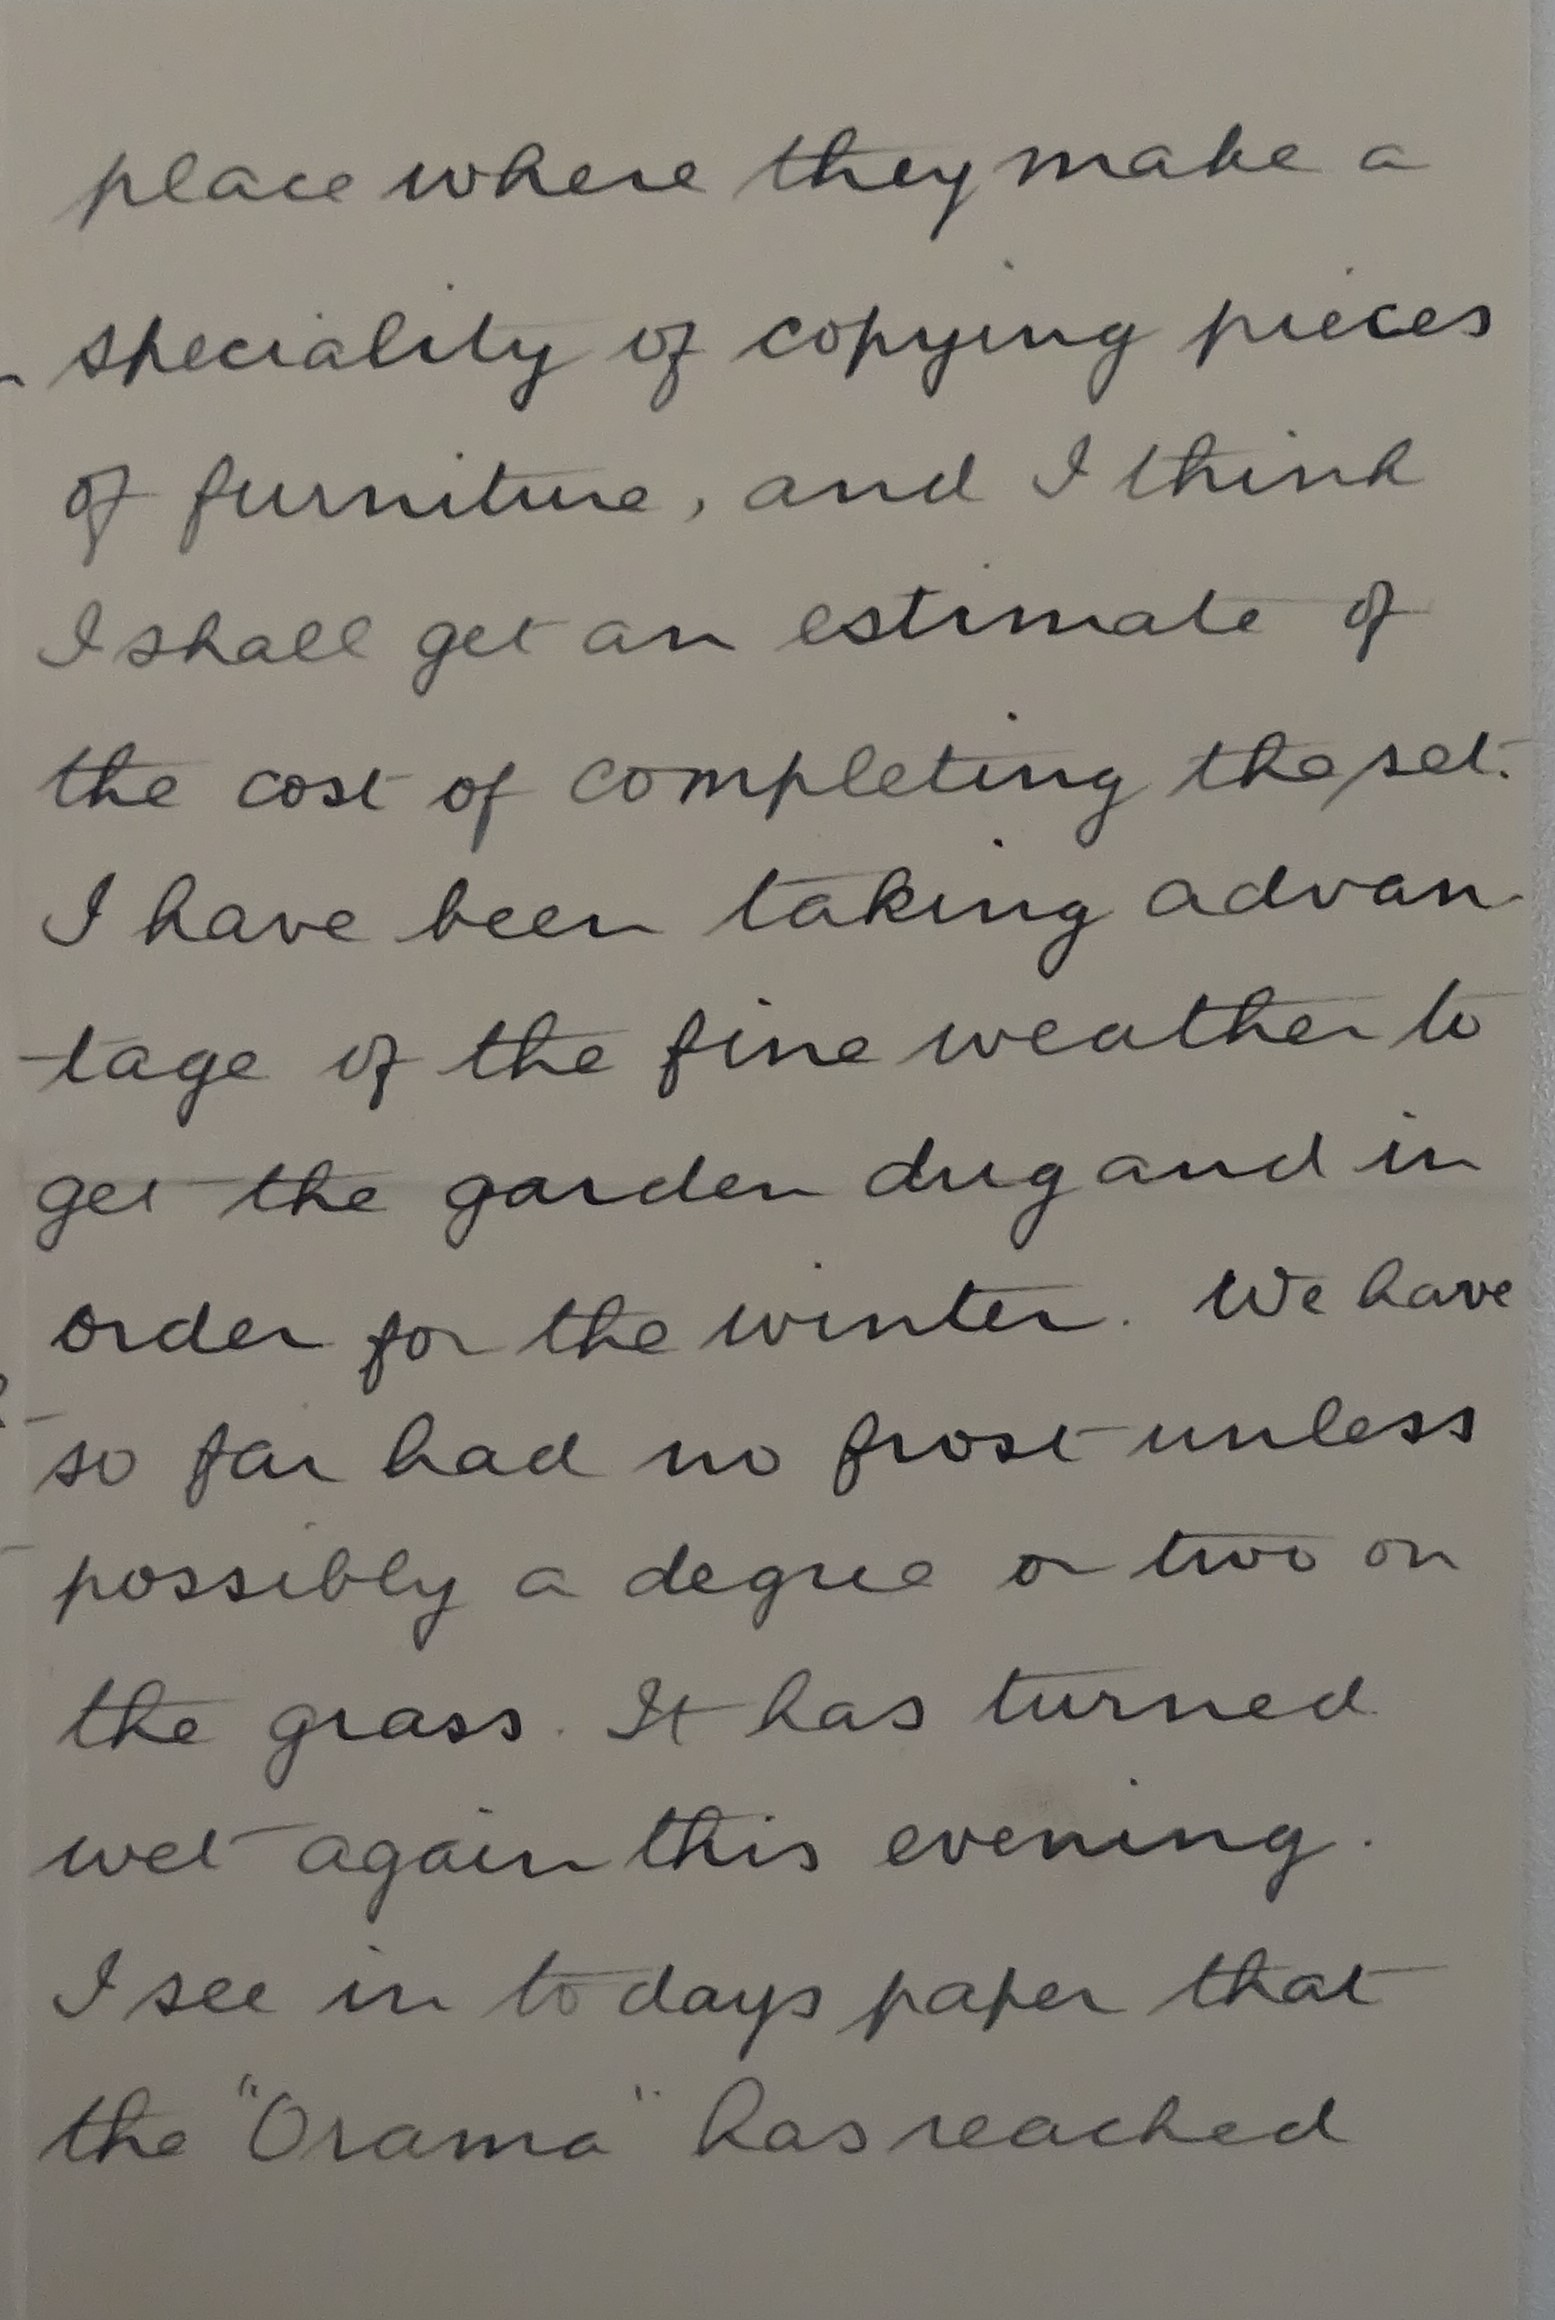 place where they make a
speciality of copying pieces
of furniture, and I think
I shall get an estimate of
the cost of completing the set.
I have been taking advan-
tage of the fine weather to
get the garden dug and in
order for the winter. We have
so far had no frost unless
possibly a degree or two on
the grass. It has turned
wet again this evening.
I see in to days paper that
the "Orama" has reached